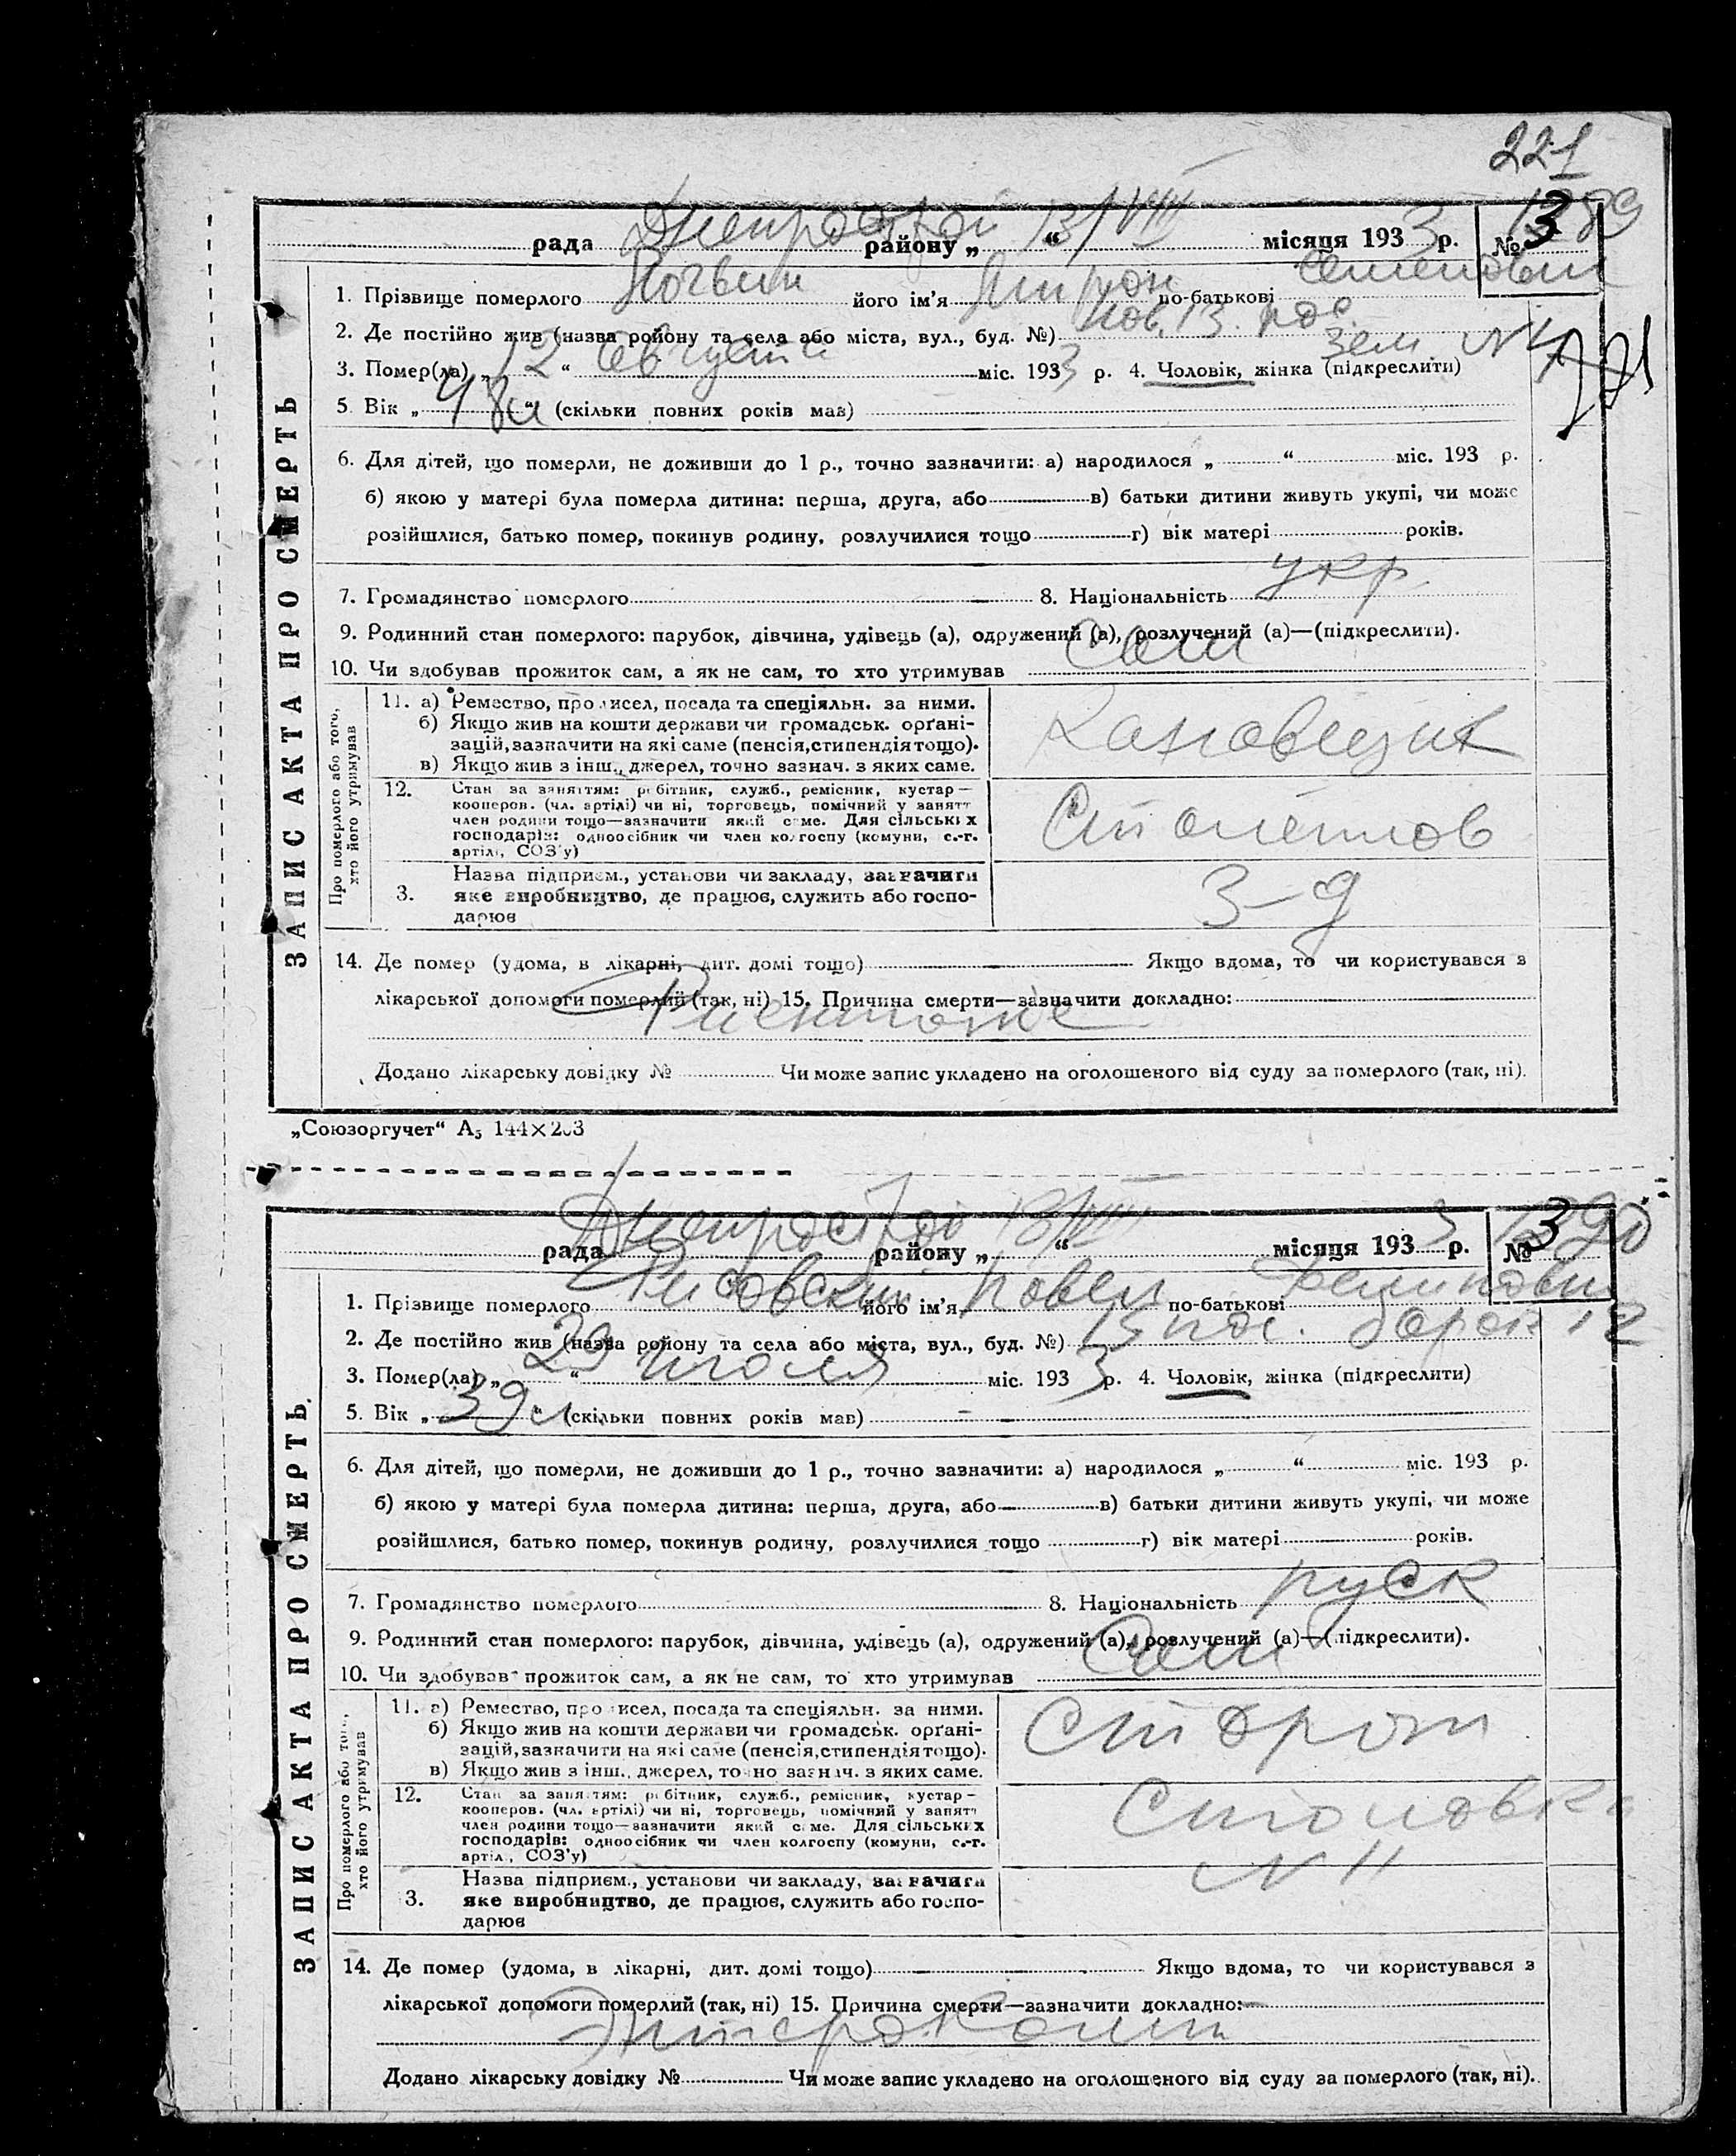 221
Днепрострой 13/VIII 3 1389
рада района „ “ місяця 193 р. № 3
1. Прізвище померлого його ім'я по-батькові Семенович
2. Де постійно жив (назва ройону та села або міста, вул., буд. №) пов. 13.
зем N 4
3. Помер(ла) „ 12 “ августа міс. 1933 р. 4. Чоловік, жінка (підкреслити)
5. Вік „ 48 л “ (скільки повних років мав)
6. Для дітей, що померли, не доживши до 1 р., точно зазначити: а) народилося „ “ міс. 193 р.
б) якою у матері була померла дитина: перша, друга, або в) батьки дитини живуть укупі, чи може
розійшлися, батько помер, покинув родину, розлучилися тощо г) вік матері років.
7. Громадянство померлого 8. Національність укр.
9. Родинний стан померлого: парубок, дівчина, удівець (а), одружений (а), розлучений (а)—(підкреслити).
10. Чи здобував прожиток сам, а як не сам, то хто утримував Сам
ЗАПИС АКТА ПРО СМЕРТЬ
Про померлого або того, хто його утримував
11. а) Ремество, промисел, посада та спеціяльн. за ними.
б) Якщо жив на кошти держави чи громадськ. орґані-
зацій, зазначити на які саме (пенсія, стипендія тощо).
в) Якщо жив з інш., джерел, точно зазнач. з яких саме.
12. Стан за заняттям: робітник, служб., ремісник, кустар—
кооперов. (чл. артілі) чи ні, торговець, помічний у занятт
член родини тощо—зазначити який саме. Для сільських
господарів: одноосібник чи член колгоспу (комуни, с.-г.
артілі, СОЗ'у)
3. Назва підприєм., установи чи закладу, зазначити
яке виробництво, де працює, служить або госпо-
дарює
З-д
14. Де помер (удома, в лікарні, дит. домі тощо) Якщо вдома, то чи користувався з
лікарської допомоги померлий (так, ні) 15. Причина смерти—зазначити докладно:
Додано лікарську довідку № Чи може запис укладено на оголошеного від суду за померлого (так, ні).
„Союзоргучет“ А₅ 144×203
Днепрострой 13/VIII 3 1390
рада району „ “ місяця 193 р. № 3
1. Прізвище померлого його ім'я Павел по-батькові
2. Де постійно жив (назва ройону та села або міста, вул., буд. №) 15 пос. барак 12
3. Помер(ла) „ 29 “ июля міс. 1933 р. 4. Чоловік, жінка (підкреслити)
5. Вік „ 39 л “ (скільки повних років мав)
6. Для дітей, що померли, не доживши до 1 р., точно зазначити: а) народилося „ “ міс. 193 р.
б) якою у матері була померла дитина: перша, друга, або в) батьки дитини живуть укупі, чи може
розійшлися, батько помер, покинув родину, розлучилися тощо г) вік матері років.
7. Громадянство померлого 8. Національність руск
9. Родинний стан померлого: парубок, дівчина, удівець (а), одружений (а), розлучений (а)—(підкреслити).
10. Чи здобував прожиток сам, а як не сам, то хто утримував Сам
ЗАПИС АКТА ПРО СМЕРТЬ
Про померлого або того, хто його утримував
11. а) Ремество, промисел, посада та спеціяльн. за ними.
б) Якщо жив на кошти держави чи громадськ. орґані-
зацій, зазначити на які саме (пенсія, стипендія тощо).
в) Якщо жив з інш., джерел, точно зазнач. з яких саме.
Сторож
12. Стан за заняттям: робітник, служб., ремісник, кустар—
кооперов. (чл. артілі) чи ні, торговець, помічний у занятт
член родини тощо—зазначити який саме. Для сільських
господарів: одноосібник чи член колгоспу (комуни, с.-г.
артілі, СОЗ'у)
Столовка
N 11
3. Назва підприєм., установи чи закладу, зазначити
яке виробництво, де працює, служить або госпо-
дарює
14. Де помер (удома, в лікарні, дит. домі тощо) Якщо вдома, то чи користувався з
лікарської допомоги померлий (так, ні) 15. Причина смерти—зазначити докладно:
Энтероколит
Додано лікарську довідку № Чи може запис укладено на оголошеного від суду за померлого (так, ні).